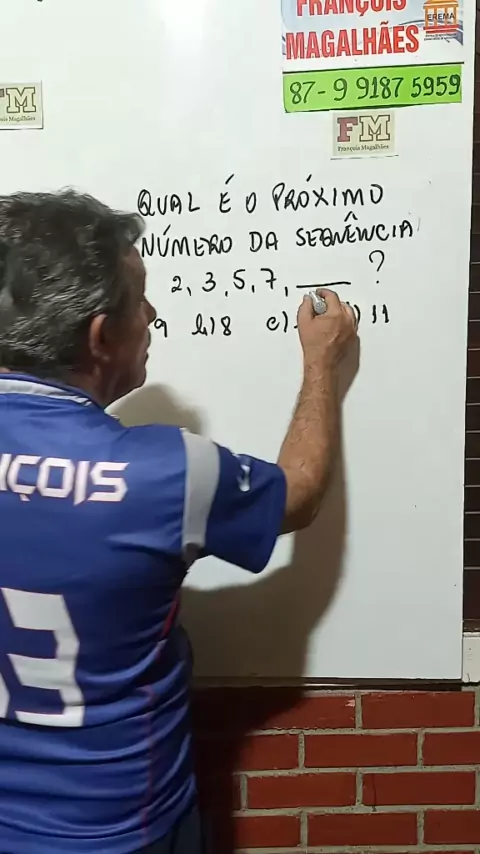 FRANÇOIS
MAGALHÃES
EREMA
87-9 9187 5959
FM
François Magalhães
FM
QUAL É O PRÓXIMO
NÚMERO DA SEQUÊNCIA
2, 3, 5, 7, ___ ?
9 b) 8 c) ) 11
ÇOIS
3